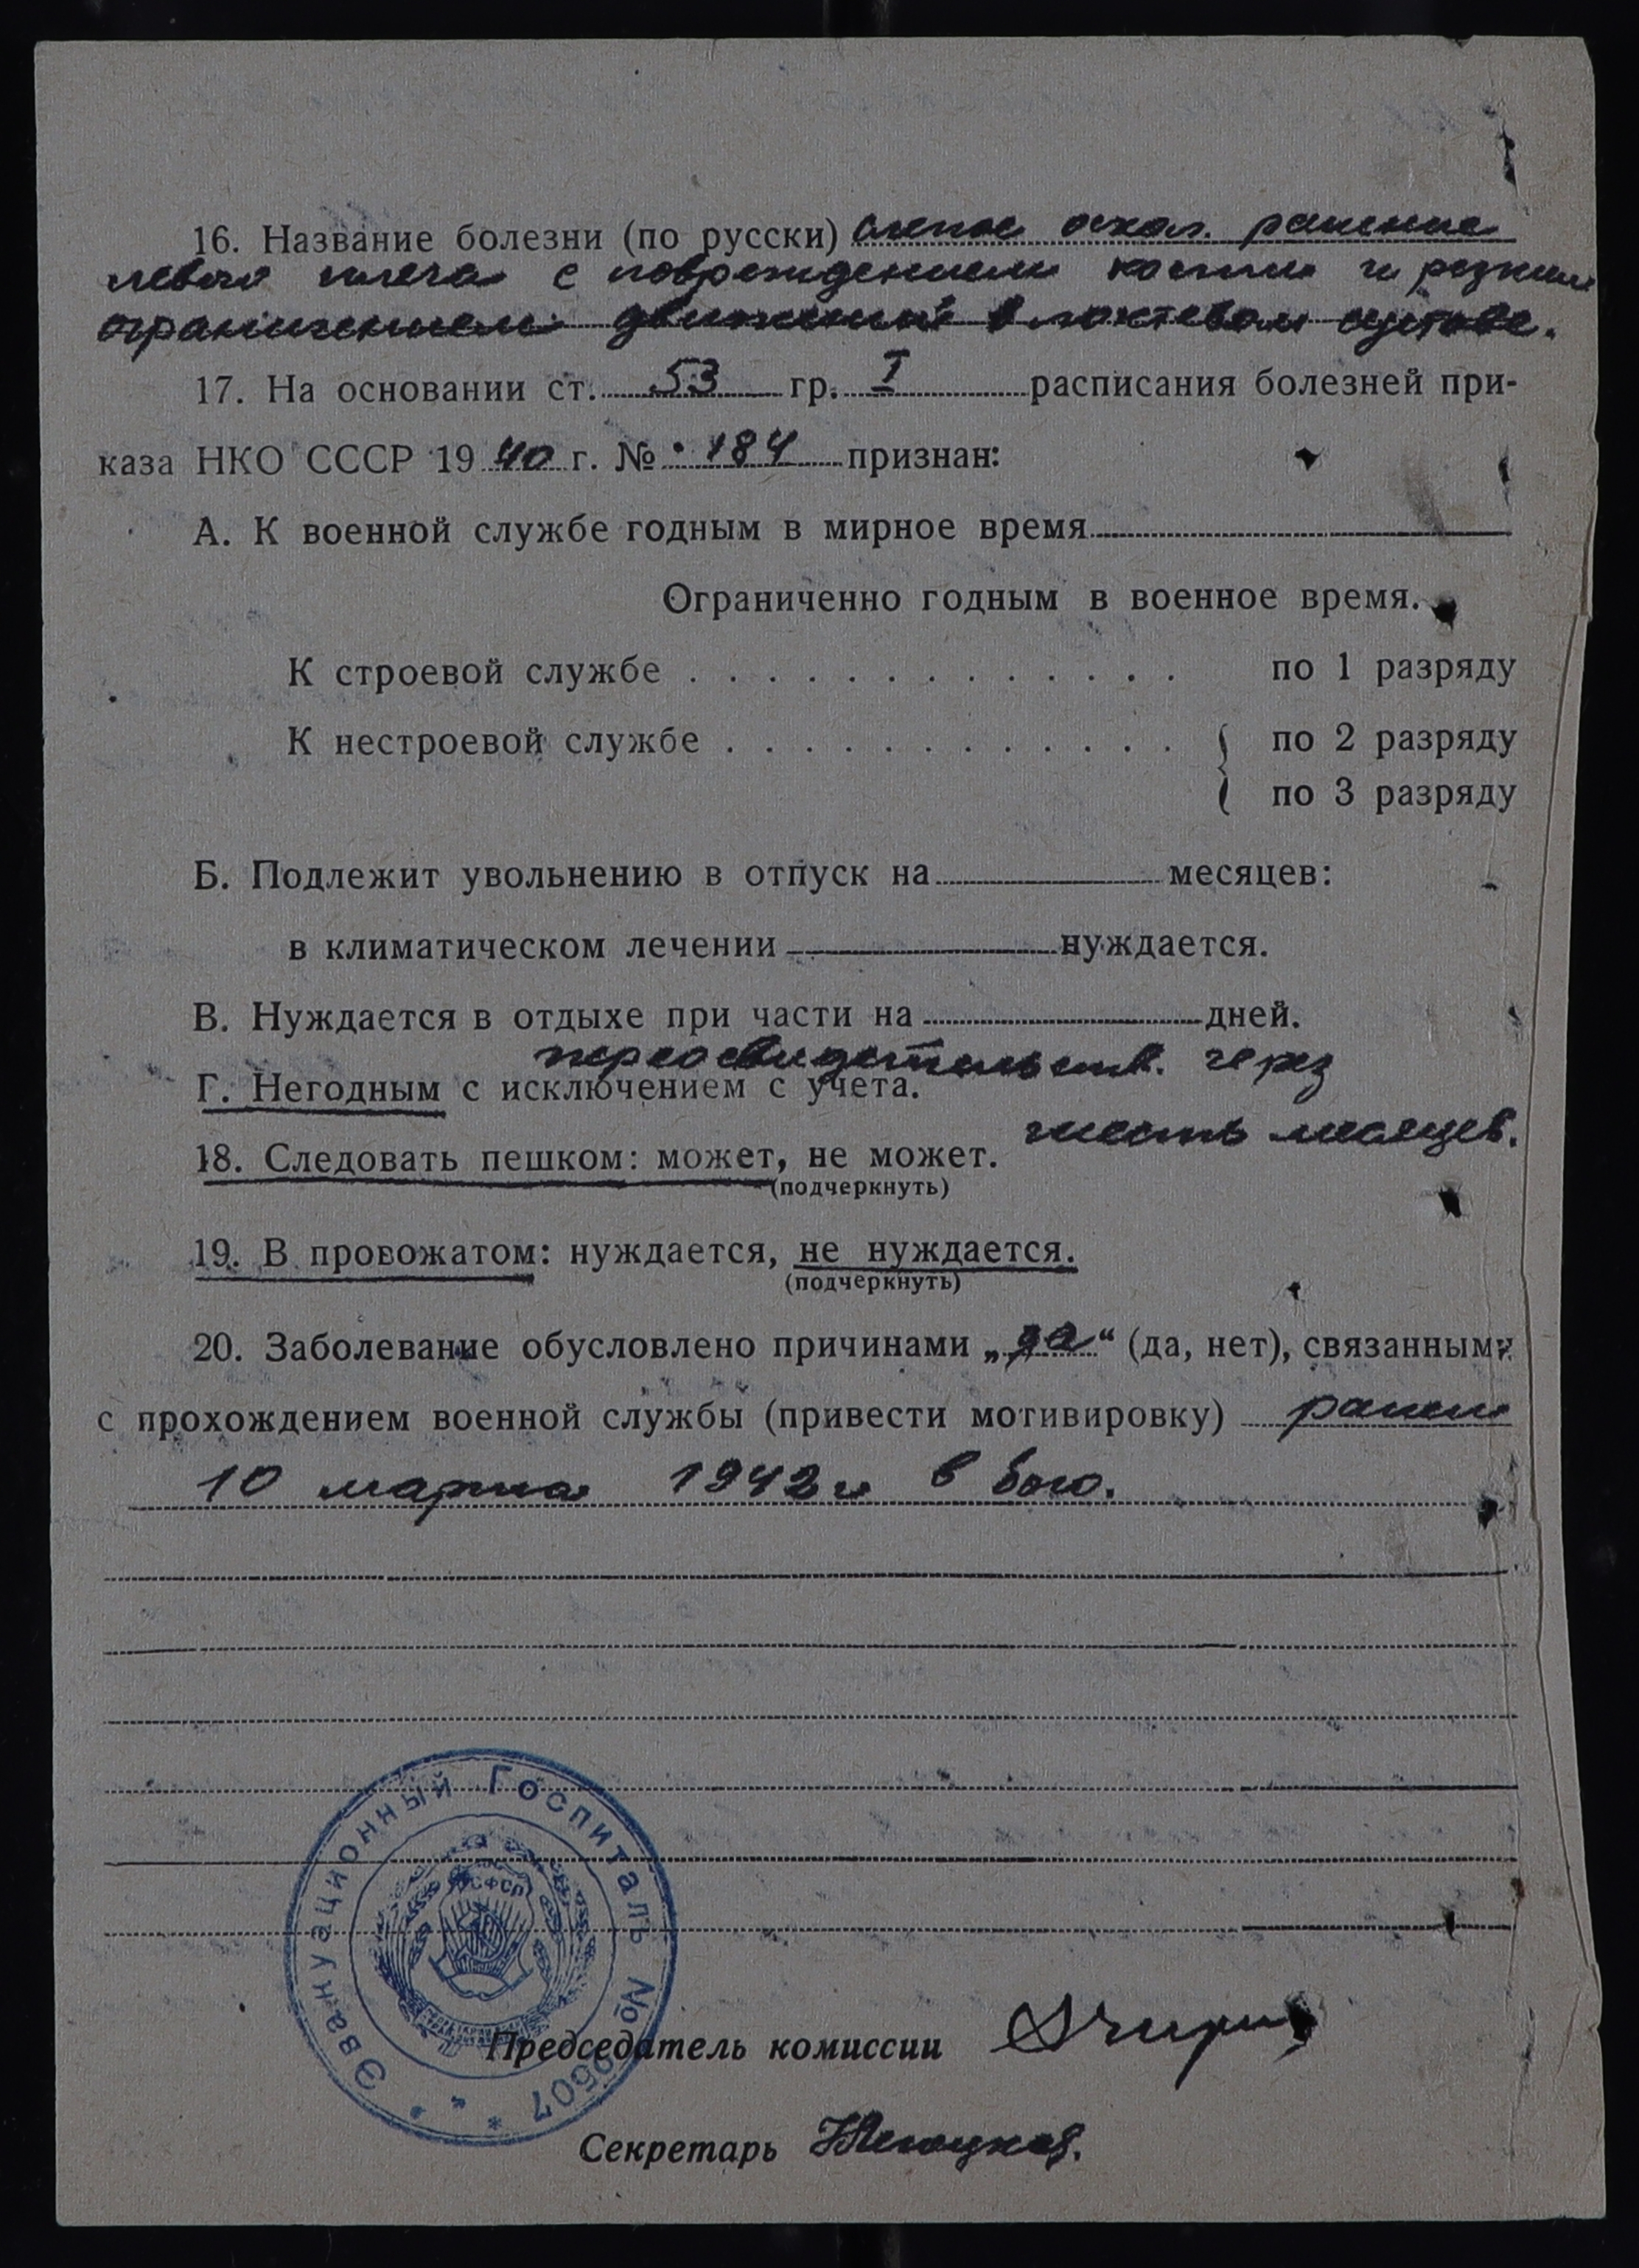 16. Название болезни (по русски) слепое оскол. ранение
левого плеча с повреждением кости и резким
ограничением движений в локтевом суставе.
17. На основании ст. 53 гр. I расписания болезней при-
каза НКО СССР 1940 г. № 184 признан:
А. К военной службе годным в мирное время
Ограниченно годным в военное время.
К строевой службе . . . . . . . . . . . . . по 1 разряду
К нестроевой службе . . . . . . . . . . . . { по 2 разряду
по 3 разряду
Б. Подлежит увольнению в отпуск на месяцев:
в климатическом лечении нуждается.
В. Нуждается в отдыхе при части на дней.
переосвидетельств. через
Г. Негодным с исключением с учета.
шесть месяцев.
18. Следовать пешком: может, не может.
(подчеркнуть)
19. В провожатом: нуждается, не нуждается.
(подчеркнуть)
20. Заболевание обусловлено причинами „да“ (да, нет), связанными
с прохождением военной службы (привести мотивировку) ранен
10 марта 1942 г в бою.
Эвакуационный Госпиталь №
РСФСР
Председатель комиссии
Секретарь